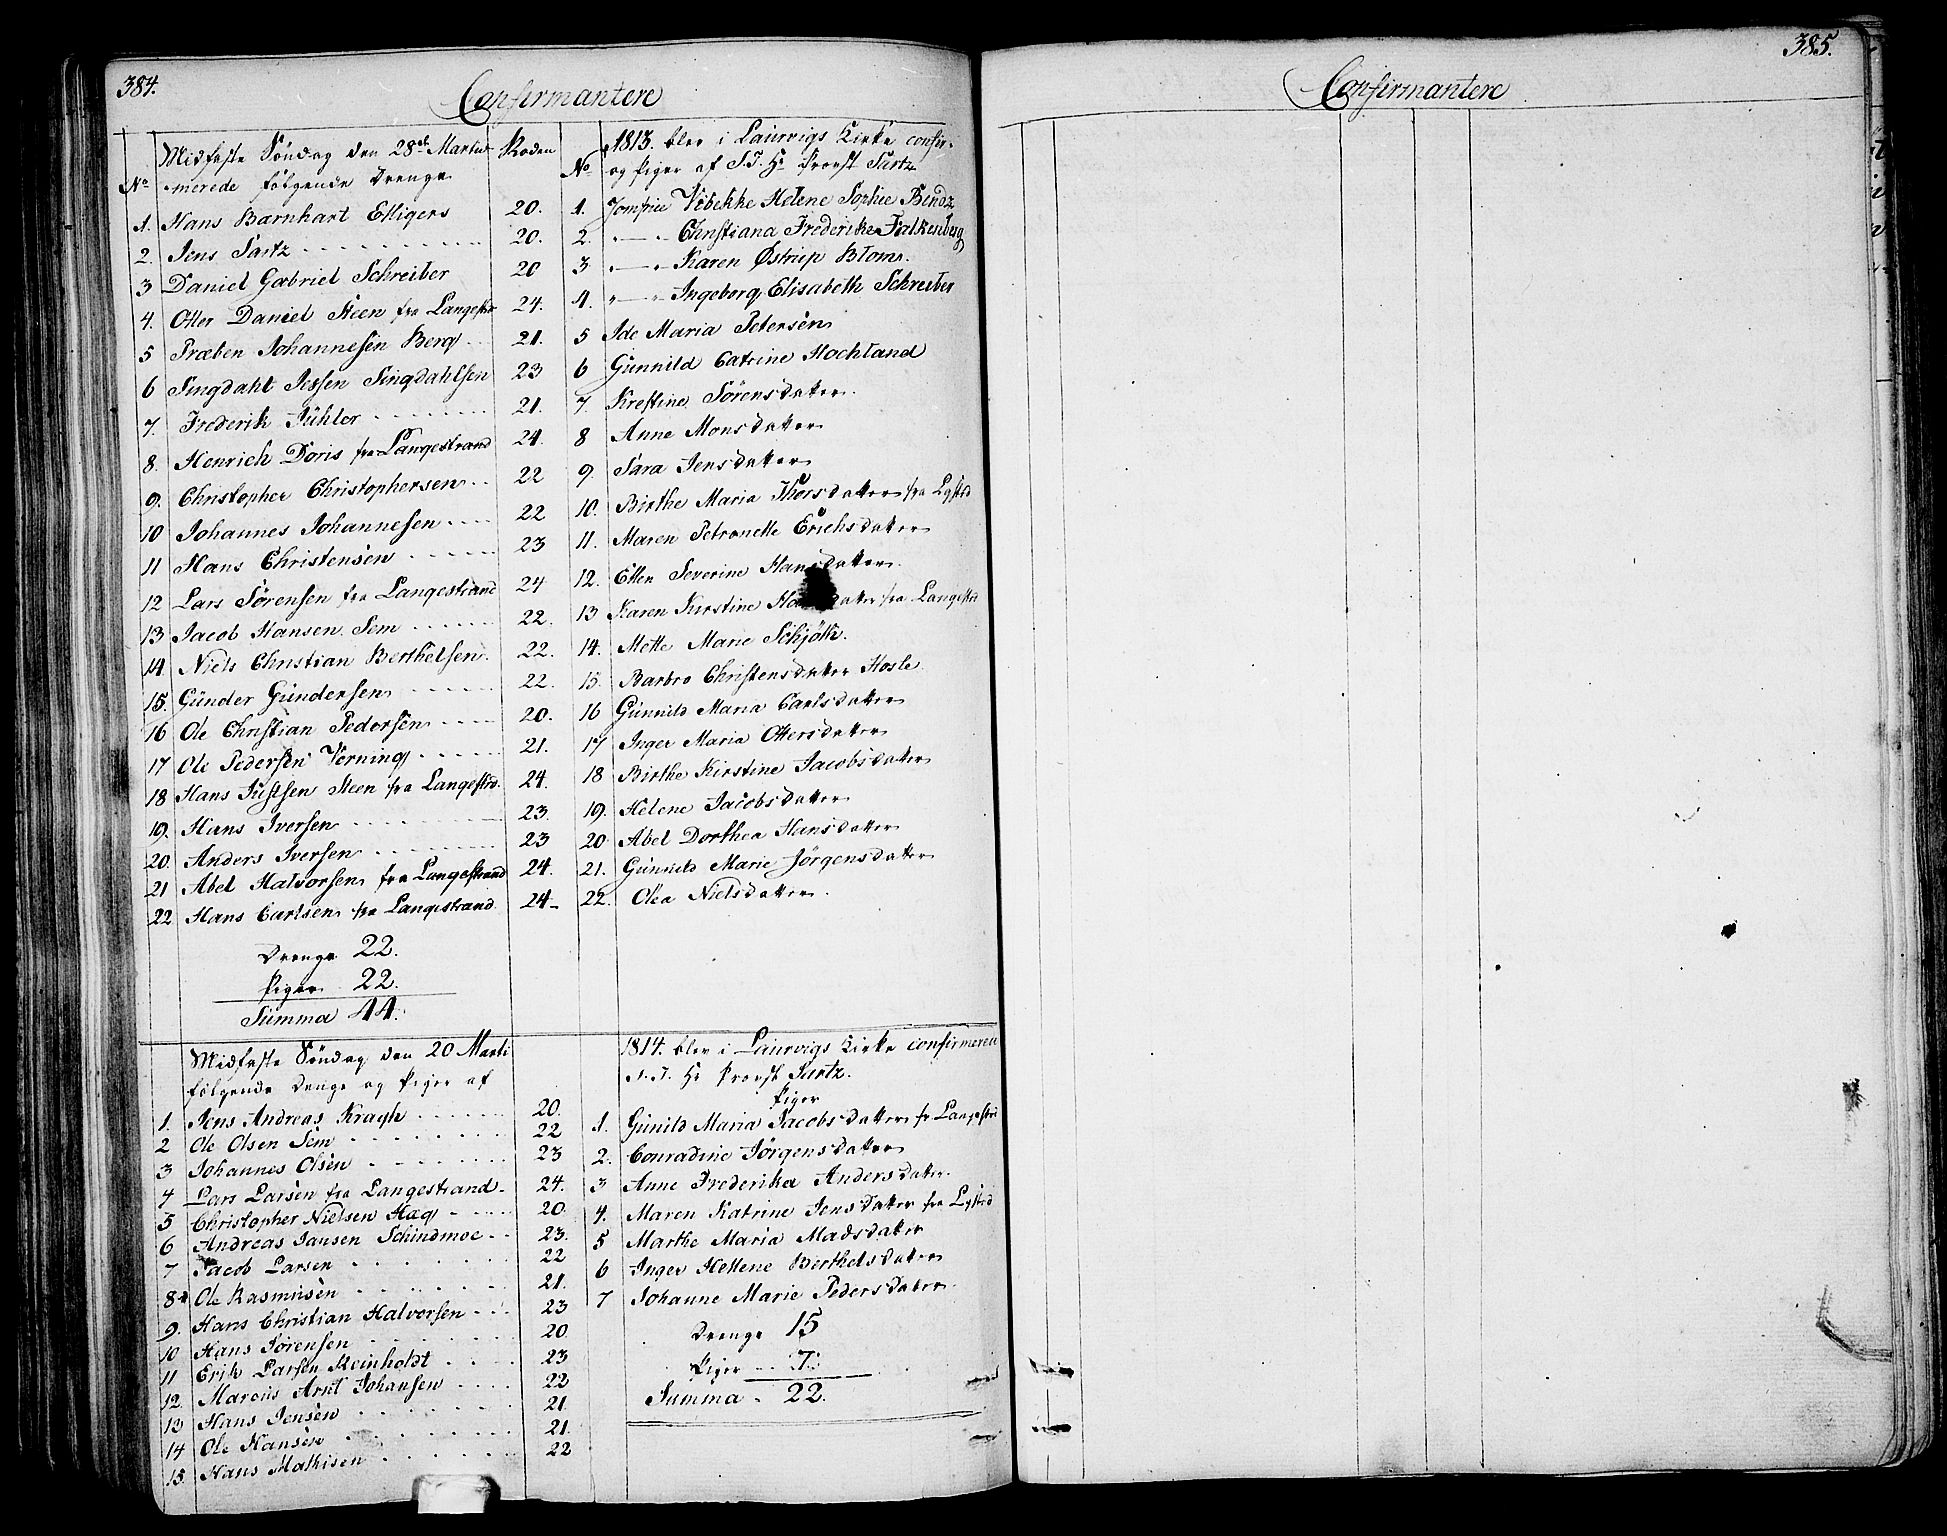 384.
Confirmantere
Midfaste Söndag den 28de Martii
No merede følgende Drenge
Roden
1. Hans Barnhart Elligers 20.
2. Jens Sartz 20.
3 Daniel Gabriel Schreiber 20
4. Otter Daniel Steen fra Langestr 24.
5 Præben Johannesen Berg 21.
6 Singdahl Jessen Singdahlsen 23
7. Frederik Jühler 21.
8. Henrich Doris fra Langestrand 24.
9. Christopher Christophersen 22
10 Johannes Johannesen 22
11 Hans Christensen 23
12 Lars Sørensen fra Langestrand 24
13 Jacob Hansen Sem 22.
14 Niels Christian Berthelsen 22.
15. Günder Gündersen 22.
16 Ole Christian Pedersen 20.
17 Ole Pedersen Verning 21.
18 Hans Justsen Steen fra Langestrd. 24.
19. Hans Iversen 23.
20. Anders Iversen 23
21 Abel Halvorsen fra Langestrand 24.
22 Hans Carlsen fra Langestrand 24
Drenge 22.
Piger 22.
Summa 44.
1813. blev i Laurvigs Kirke confir-
No og Piger af S.T. Hr Provst Sartz
1. Jomfrue Vibekke Helene Sophie Bendz
2. Christiana Frederike Falkenberg
3 Karen Østrup Blom
4. Ingeborg Elisabeth Schreiber
5 Ide Maria Petersen
6 Gunnild Catrine Hochland
7. Krestine Sørensdatter
8 Anne Monsdatter
9. Sara Jensdatter
10. Birthe Maria Thorsdatter fra Lgstrd
11. Maren Petronelle Erichsdatter
12. Ellen Severine Hansdatter
13 Karen Kirstine datter fra Langestr
14. Mette Marie Schjøth.
15. Barbro Christensdatter Hosle
16 Günnild Maria Carlsdatter
17 Inger Maria Ottersdatter
18 Birthe Kirstine Jacobsdatter
19. Helene Jacobsdatter
20 Abel Dorthea Hansdatter
21. Günnild Marie Jörgensdatter
22. Olea Nielsdatter
Midfaste Söndag den 20 Marti
følgende Drenge og Piger af
1. Jens Andreas Kragh 20.
2 Ole Olsen Sem 22
3 Johannes Olsen 23
4 Lars Larsen fra Langestrand 24.
5 Christopher Nielsen Hæg 20
6 Andreas Jansen Schindmoe 23.
7 Jacob Larsen 22
8 Ole Rasmusen 21.
9. Hans Christian Halvorsen 23
10 Hans Sørensen 20
11 Erik Larsen Reinholdt 23
12. Marcus Arnt Johansen 22
13 Hans Jensen 21
14 Ole Hansen 21.
15. Hans Mathisen 22
1814. blev i Laurvigs Kirke confirmeret
S.T. Hr Provst Sartz.
Piger
1. Günild Maria Jacobsdatter fr Langestrd
2. Conradine Jørgensdatter
3 Anne Frederikea Andersdatter
4. Maren Katrine Jensdatter fra Lgstrd
5 Marthe Maria Madsdatter
6 Inger Hellene Berthelsdatter
7 Johanne Marie Pedersdatter
Drenge 15
Piger 7.
Summa 22.
385.
Confirmantere